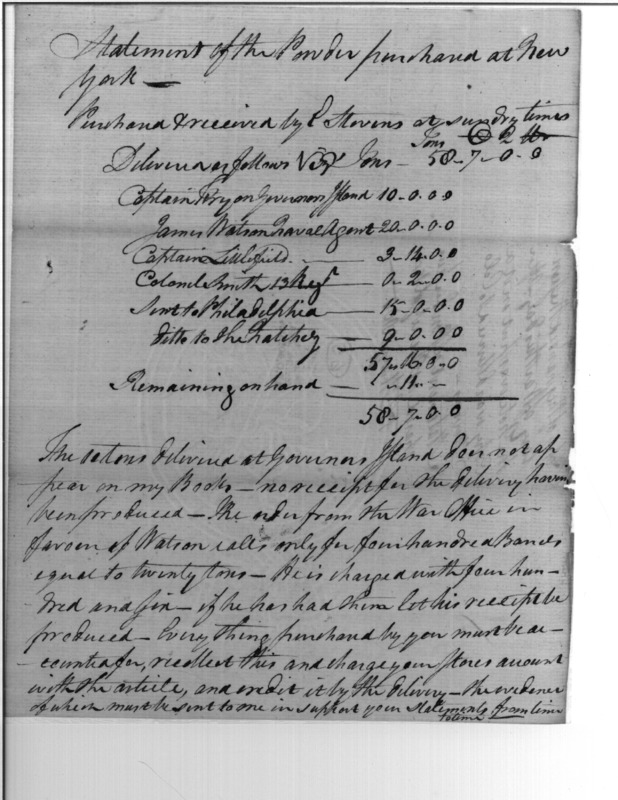 Statement of the Powder purchased at New
York —
Purchased & received by E Stevens at sundry times
Tons
Delivered as follows Viz Tons — 58-7-0-0
Captain Fry on Governors Island 10-0.0.0
James Watson Naval Agent 20-0.0.0
Captain Littlefield — 3-14.0.0
Colonel Smith 13 Regt — 0-2-0.0
Sent to Philadelphia — 15-0-0.0
Ditto to the Natchez — 9-0.0.0
57-16.0-0
Remaining on hand — -11- -
58-7-0.0
The 10 tons delivered at Governors Island does not ap
pear on my Books — no receipt for the delivery having
been produced — The order from the War Office in
favour of Watson calls only for four hundred Barrels
equal to twenty tons — He is charged with four hun-
dred and six — if he has had them let his receipt be
produced — Every thing purchased by you must be ac-
counted for, recollect this and charge your Stores account
with the article, and credit it by the delivery — the evidence
of which must be sent to me in support your statements from time
to time